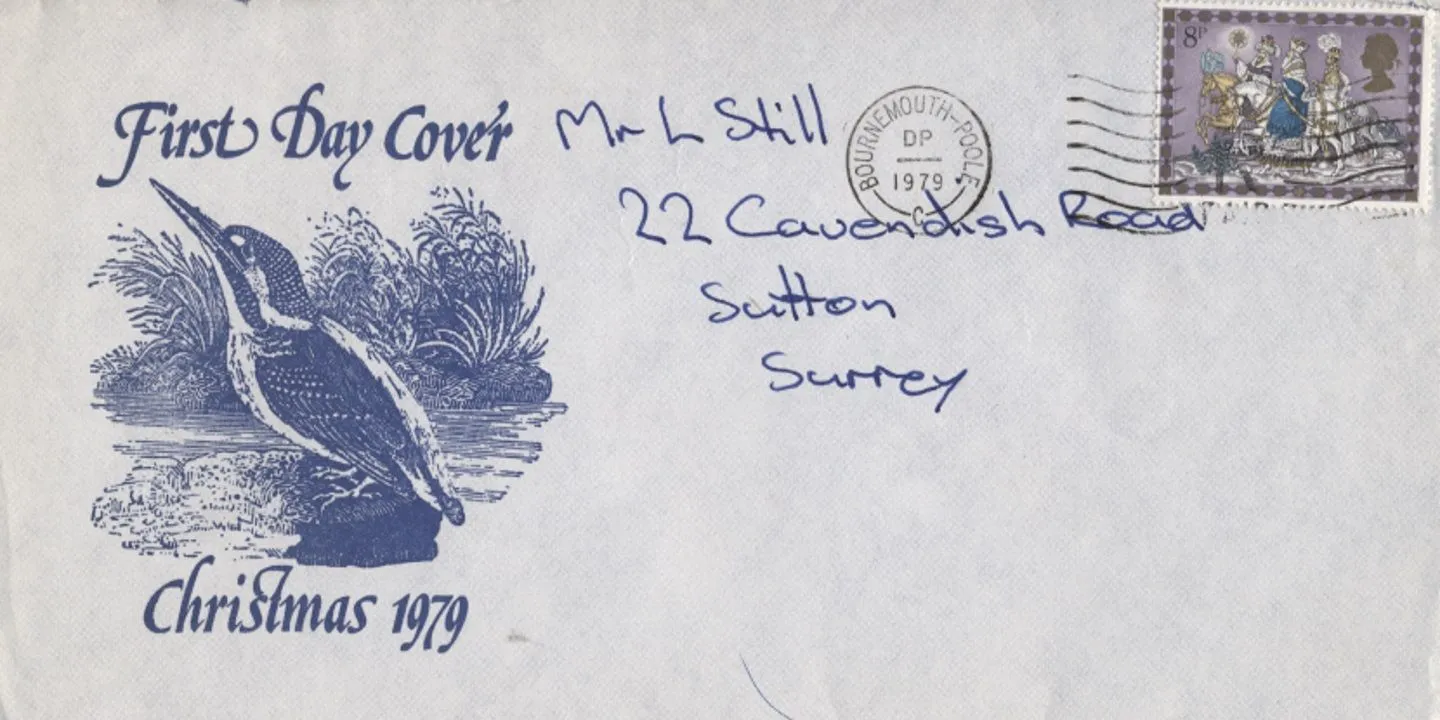 First Day Cover
Mr L Still
22 Cavendish Road
Sutton
Surrey
BOURNEMOUTH-POOLE
DP
1979
C
8P
Christmas 1979